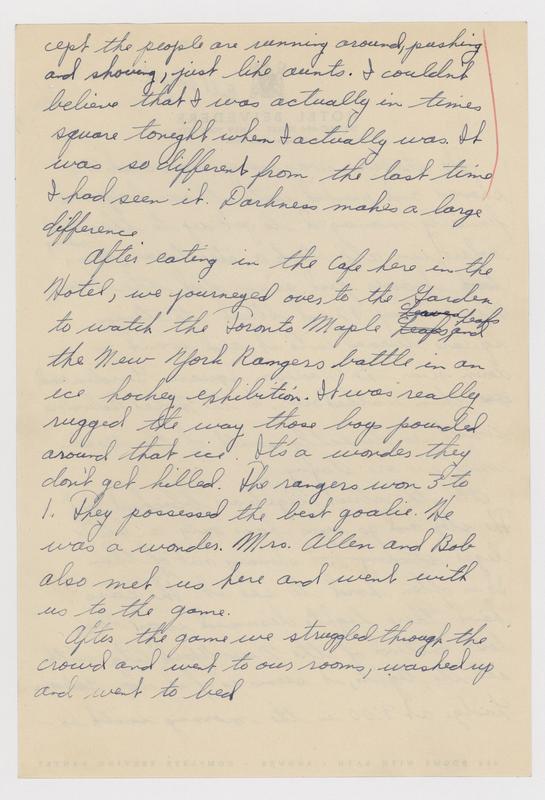 cept the people are running around, pushing
and shoving, just like aunts. I couldn't
believe that I was actually in times
square tonight when I actually was. It
was so different from the last time
I had seen it. Darkness makes a large
difference
After eating in the cafe here in the
Hotel, we journeyed over to the Garden
Leafs
to watch the Toronto Maple Leafs and
the New York Rangers battle in an
ice hockey exhibition. It was really
rugged the way those boys pounded
around that ice. It's a wonder they
don't get killed. The rangers won 3 to
1. They possessed the best goalie. He
was a wonder. Mrs. Allen and Bob
also met us here and went with
us to the game.
After the game we struggled through the
crowd and went to our rooms, washed up
and went to bed